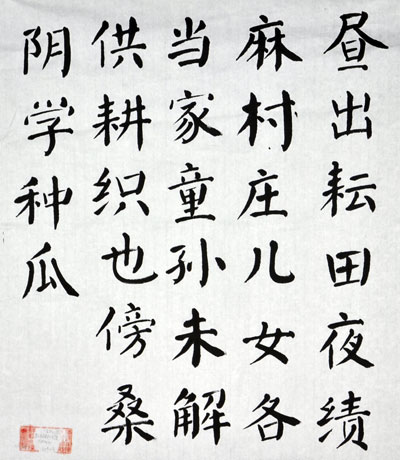 昼出耘田夜绩
麻村庄儿女各
当家童孙未解
供耕织也傍桑
阴学种瓜